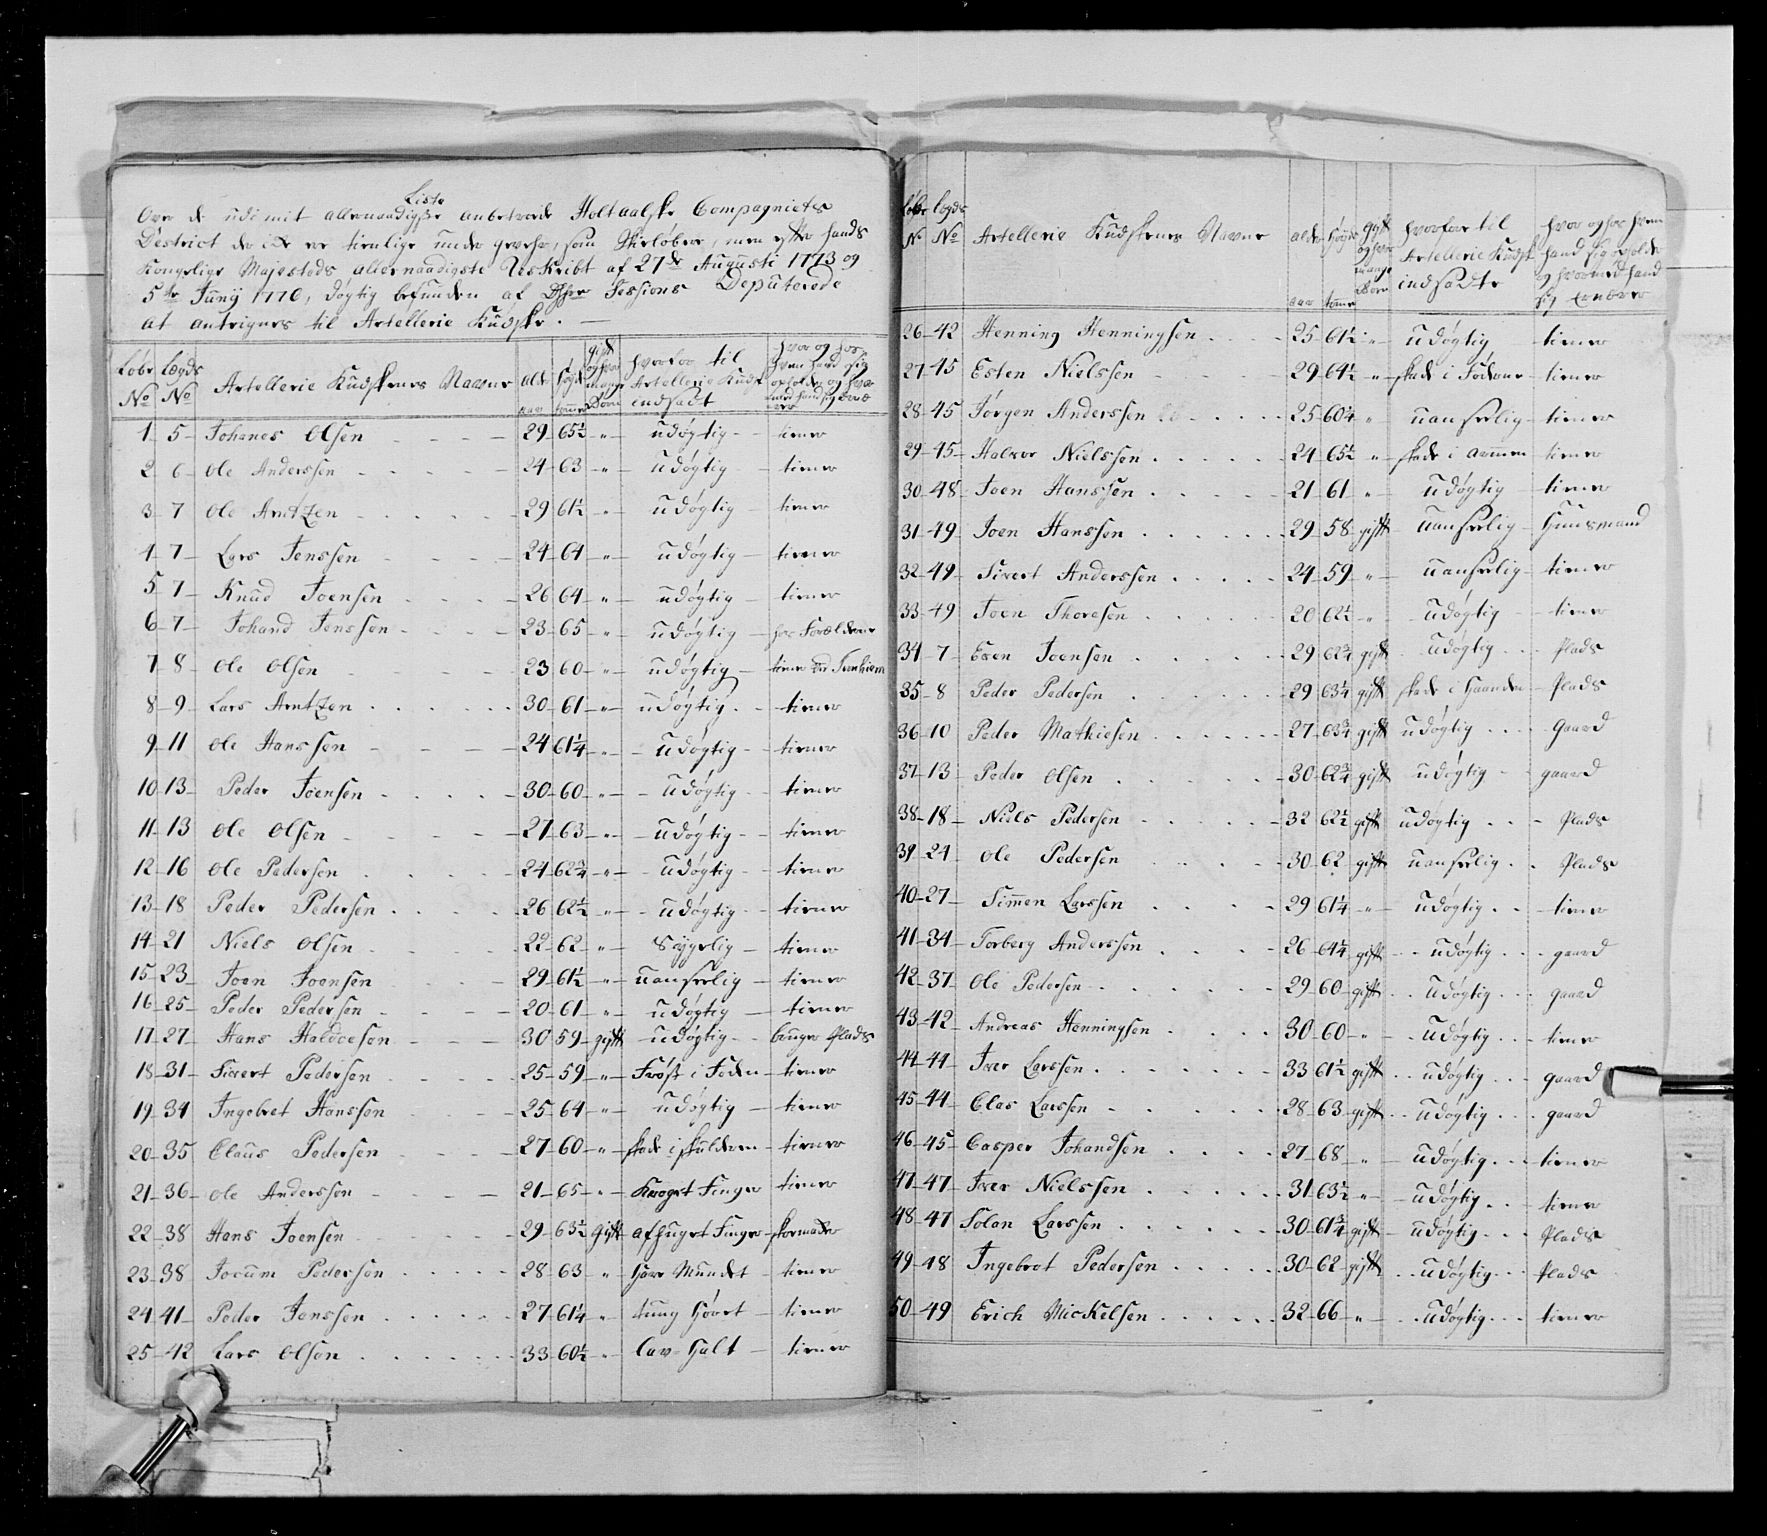 Liste
Over de udi mit allernaadigste anbetroede Holtaalske Compagniets
District der ike er tienlige under gevehr, som Skieløbere, men efter hands
Kongelige Majestæds allernaadigste Reskribt af 27de Augusti 1773 og
5te Junij 1776, døgtig befunden af Sessions Deputerede
at anteignes til Artellerie Kudske. —
Løbe No | Lægds No | Artellerie Kudskenes Navne | alder aar | høyde tomer | gift og hvor mange Børn | hvorfor til Artellerie Kudsk indsadt | hvor og hos hvem hand sig opholder og hvor med hand sig ernærer
1 – 5 – Johanes Olsen – 29 – 65½ – „ – udøgtig – tiener
2 – 6 – Ole Anderssen – 24 – 63 – „ – udøgtig – tiener
3 – 7 – Ole Arntzen – 29 – 61½ – „ – udøgtig – tiener
4 – 7 – Lars Jenssen – 24 – 61 – „ – udøgtig – tiener
5 – 7 – Knud Joensen – 26 – 64 – „ – udøgtig – tiener
6 – 7 – Johand Jenssen – 23 – 65 – „ – udøgtig – hos Forældrene
7 – 8 – Ole Olsen – 23 – 60 – „ – udøgtig – tiener ved Tronhiem
8 – 9 – Lars Arntzen – 30 – 61 – „ – udøgtig – tiener
9 – 11 – Ole Hanssen – 24 – 61¼ – „ – udøgtig – tiener
10 – 13 – Peder Joensen – 30 – 60 – „ – udøgtig – tiener
11 – 13 – Ole Olsen – 27 – 63 – „ – udøgtig – tiener
12 – 16 – Ole Pedersen – 24 – 62¾ – „ – udøgtig – tiener
13 – 18 – Peder Pedersen – 26 – 62½ – „ – udøgtig – tiener
14 – 21 – Niels Olsen – 22 – 62 – „ – Sygelig – tiener
15 – 23 – Joen Joensen – 29 – 61½ – „ – uanseelig – tiener
16 – 25 – Peder Pedersen – 20 – 61 – „ – udøgtig – tiener
17 – 27 – Hans Haldoesen – 30 – 59 – gift – udøgtig – bruger Plads
18 – 31 – Sivert Pedersen – 25 – 59 – „ – Frost i Foden – tiener
19 – 34 – Ingebret Hanssen – 25 – 64 – „ – udøgtig – tiener
20 – 35 – Claus Pedersen – 27 – 60 – „ – skade i skulderen – tiener
21 – 36 – Ole Anderssen – 21 – 65 – „ – Kroget Finger – tiener
22 – 38 – Hans Joensen – 29 – 63½ – gift – afhuget Finger – skomader
23 – 38 – Jocum Pedersen – 28 – 63 – „ – Har Mundet – tiener
24 – 41 – Peder Jenssen – 27 – 61¼ – „ – tung Hørt – tiener
25 – 42 – Lars Olsen – 33 – 60½ – „ – lav Halt – tiener
Løbe No | Lægds No | Artellerie Kudskenes Navne | alder aar | høyde tomer | gift og hvor mange Børn | hvorfor til Artellerie Kudsk indsadte | hvor og hos hvem hand sig opholder og hvormed hand sig ernærer
26 – 42 – Henning Henningsen – 25 – 61½ – „ – udøgtig – tiener
27 – 45 – Esten Nielssen – 29 – 64½ – „ – skade i Fødderne – tiener
28 – 45 – Jørgen Anderssen – 25 – 60¼ – „ – uanseelig – tiener
29 – 45 – Halvor Nielssen – 24 – 65½ – „ – skade i armmen – tiener
30 – 48 – Joen Hanssen – 21 – 61 – „ – udøgtig – tiener
31 – 49 – Joen Hanssen – 29 – 58 – gift – uanseelig – Huusmand
32 – 49 – Sivert Anderssen – 24 – 59 – „ – uanseelig – tiener
33 – 49 – Joen Thoresen – 20 – 62½ – „ – udøgtig – tiener
34 – 7 – Even Joensen – 29 – 62¾ – gift – udøgtig – Plads
35 – 8 – Peder Pedersen – 29 – 63¼ – gift – skade i Haanden – Plads
36 – 10 – Peder Mathiesen – 27 – 63¾ – gift – udøgtig – Gaard
37 – 13 – Peder Olsen – 30 – 62¾ – gift – udøgtig – gaard
38 – 18 – Niels Pedersen – 32 – 62½ – gift – udøgtig – Plads
39 – 21 – Ole Pedersen – 30 – 62 – gift – uanseelig – Plads
40 – 27 – Simmen Larssen – 29 – 61¼ – „ – udøgtig – tiener
41 – 34 – Torberg Anderssen – 26 – 64¼ – gift – udøgtig – gaard
42 – 37 – Ole Pedersen – 29 – 60 – gift – udøgtig – gaard
43 – 42 – Andreas Henningsen – 30 – 60 – „ – udøgtig – tiener
44 – 44 – Iver Larssen – 33 – 61½ – gift – udøgtig – gaard
45 – 44 – Clas Larssen – 28 – 63 – gift – udøgtig – gaard
46 – 45 – Casper Johandsen – 27 – 68 – „ – udøgtig – tiener
47 – 47 – Iver Nielssen – 31 – 63½ – „ – udøgtig – tiener
48 – 47 – Solan Larssen – 30 – 61¾ – gift – udøgtig – Plads
49 – 48 – Ingebrot Pedersen – 30 – 62 – gift – udøgtig – Plads
50 – 49 – Erich Mickelsen – 32 – 66 – „ – udøgtig – tiener